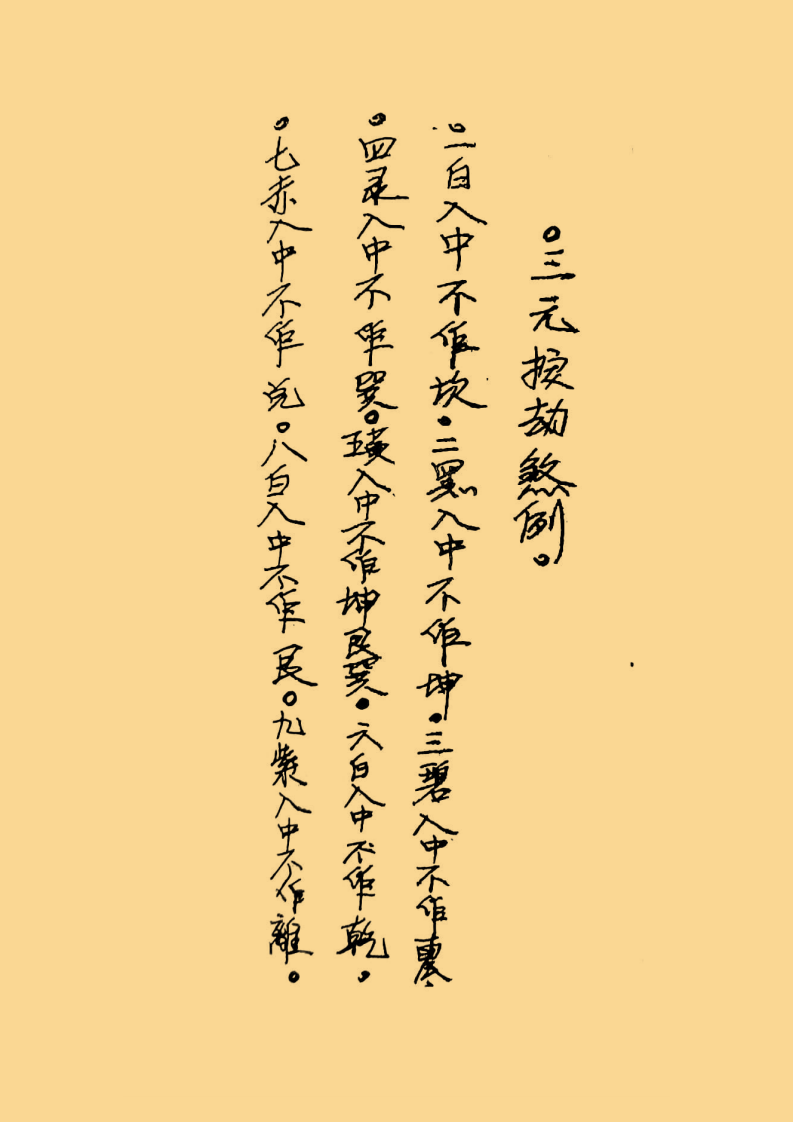 。三元按劫煞例。
。一白入中不作坎。二黑入中不作坤。三碧入中不作震。
。四录入中不作巽。五黄入中不作坤艮巽。六白入中不作乾。
。七赤入中不作兑。八白入中不作艮。九紫入中不作離。